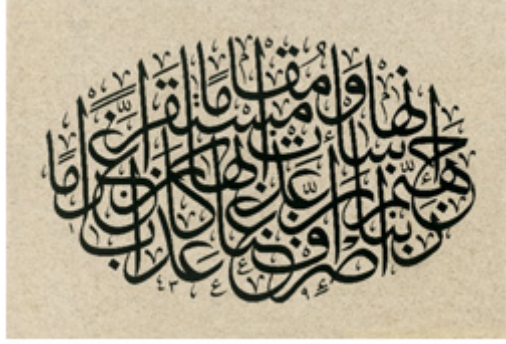 ربنا اصرف عنا عذاب
جهنم إن عذابها كان غراما
إنها ساءت مستقرا ومقاما